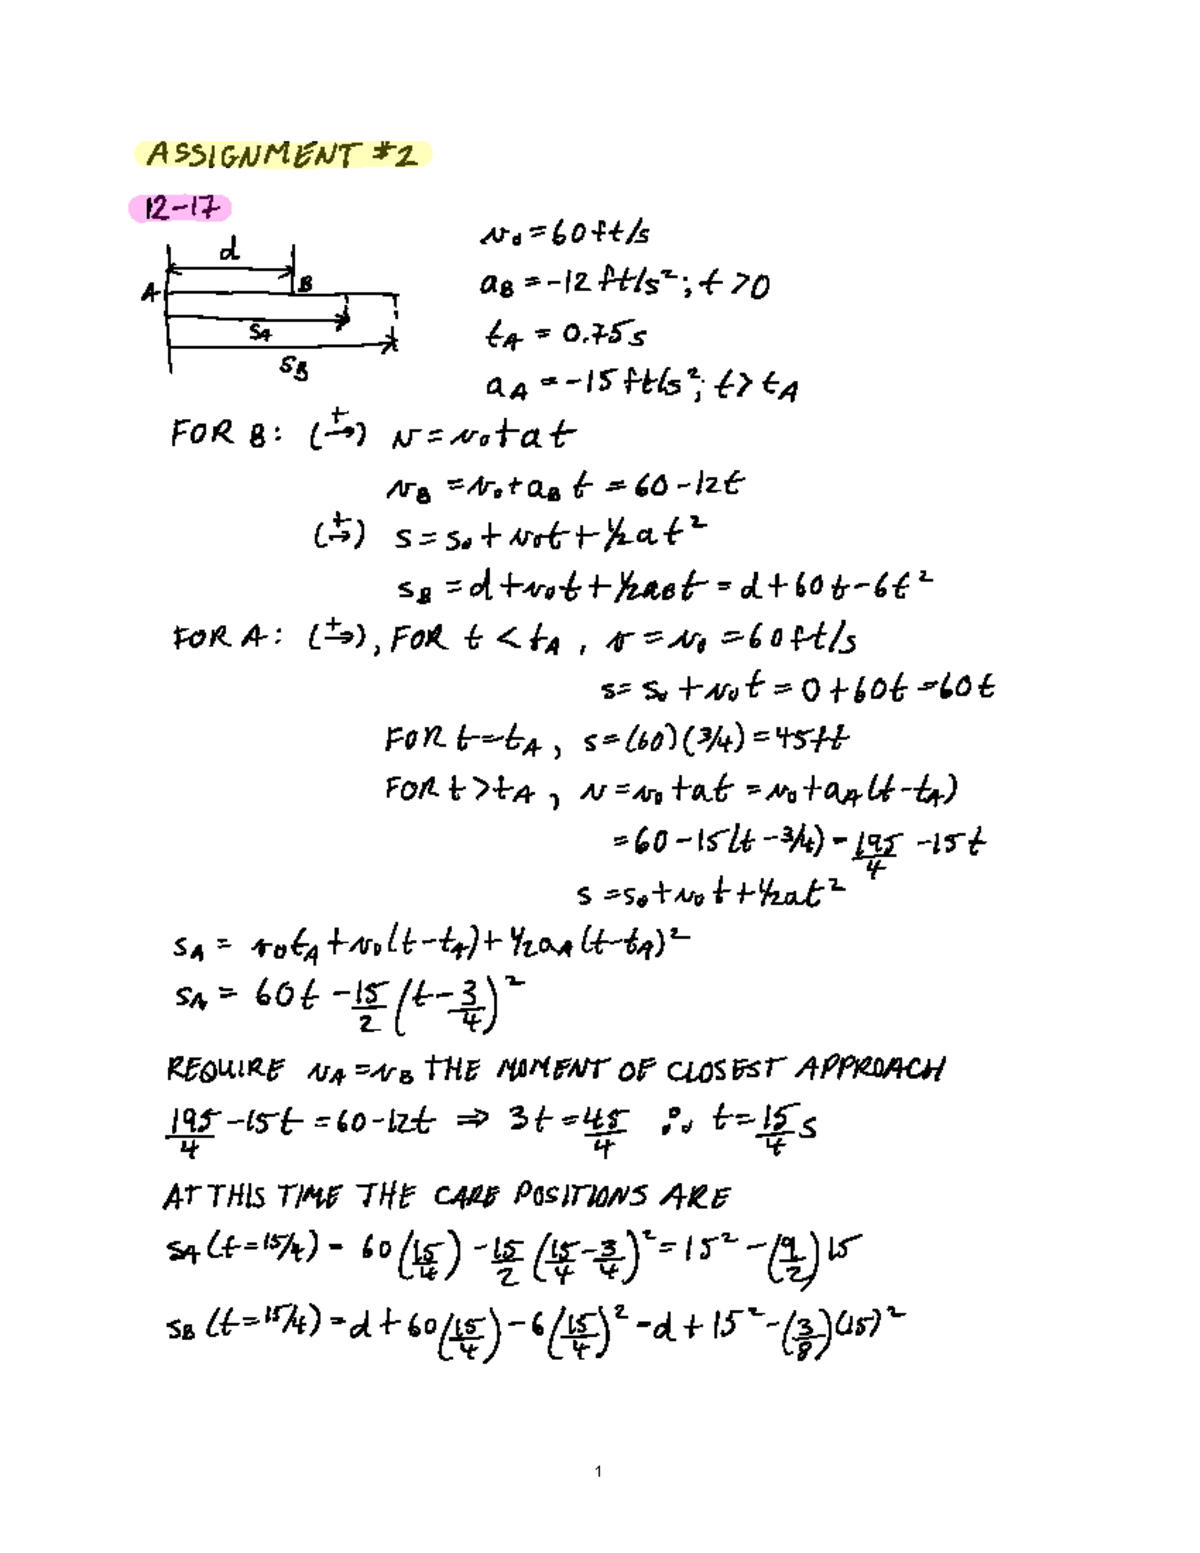 ASSIGNMENT #2
12-17
d
A
B
SA
SB
v₀ = 60 ft/s
aB = -12 ft/s²; t > 0
tA = 0.75 s
aA = -15 ft/s²; t > tA
FOR B: (→+) v = v₀ + at
vB = v₀ + aB t = 60 - 12t
(→+) s = s₀ + v₀t + ½at²
sB = d + v₀t + ½aBt = d + 60t - 6t²
FOR A: (→+), FOR t < tA, v = v₀ = 60 ft/s
s = s₀ + v₀t = 0 + 60t = 60t
FOR t = tA, s = (60)(3/4) = 45 ft
FOR t > tA, v = v₀ + at = v₀ + aA(t - tA)
= 60 - 15(t - 3/4) = 195/4 - 15t
s = s₀ + v₀t + ½at²
sA = v₀tA + v₀(t - tA) + ½aA(t - tA)²
sA = 60t - 15/2 (t - 3/4)²
REQUIRE vA = vB THE MOMENT OF CLOSEST APPROACH
195/4 - 15t = 60 - 12t ⇒ 3t = 45/4 ∴ t = 15/4 s
AT THIS TIME THE CARE POSITIONS ARE
sA (t = 15/4) = 60(15/4) - 15/2 (15/4 - 3/4)² = 15² - (9/2)15
sB (t = 15/4) = d + 60(15/4) - 6(15/4)² = d + 15² - (3/8)(15)²
1